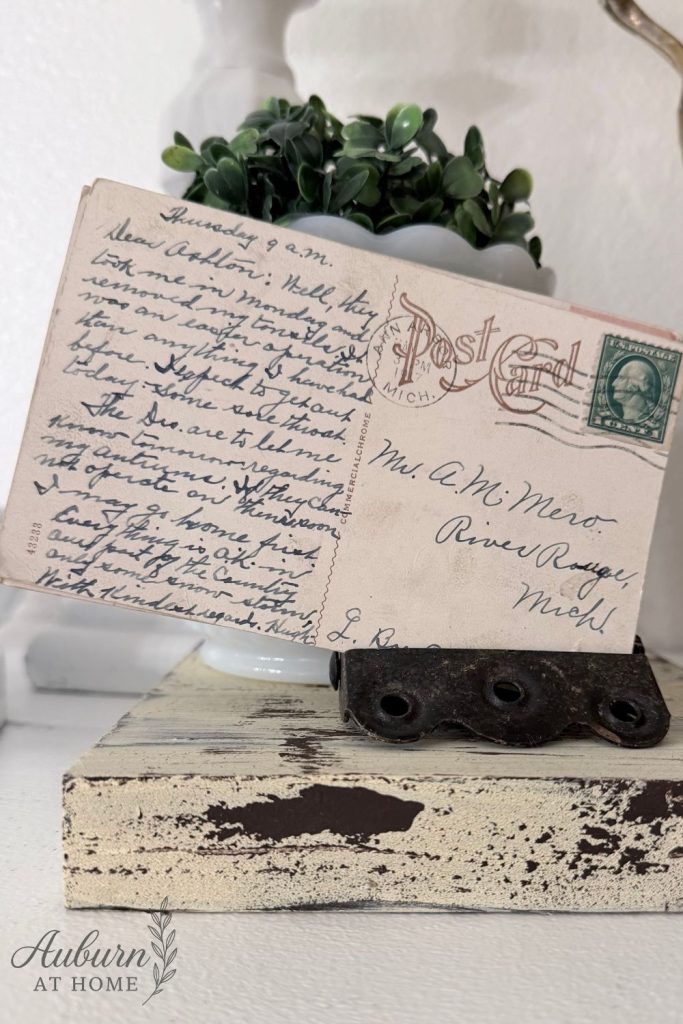 Thursday 9 a.m.
Dear Ashton: Well, they
took me in Monday and
removed my tonsils. It
was an easier operation
than anything I have had
before. I expect to get out
today. Some sore throat.
The Drs. are to let me
know tomorrow regarding
my antrums. If they can
not operate on them soon
I may go home first.
Everything is O.K. in
our part of the country
only some snow storm.
With kindest regards. Hugh
43233
COMMERCIALCHROME
Post Card
ANN
PM
MICH.
U.S. POSTAGE
CENTS
Mr. A. M. Mero.
River Rouge,
Mich.
Auburn
AT HOME